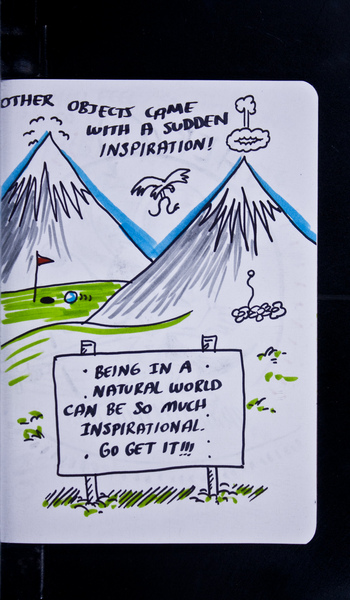 OTHER OBJECTS CAME
WITH A SUDDEN
INSPIRATION!
BEING IN A
NATURAL WORLD
CAN BE SO MUCH
INSPIRATIONAL.
GO GET IT!!!